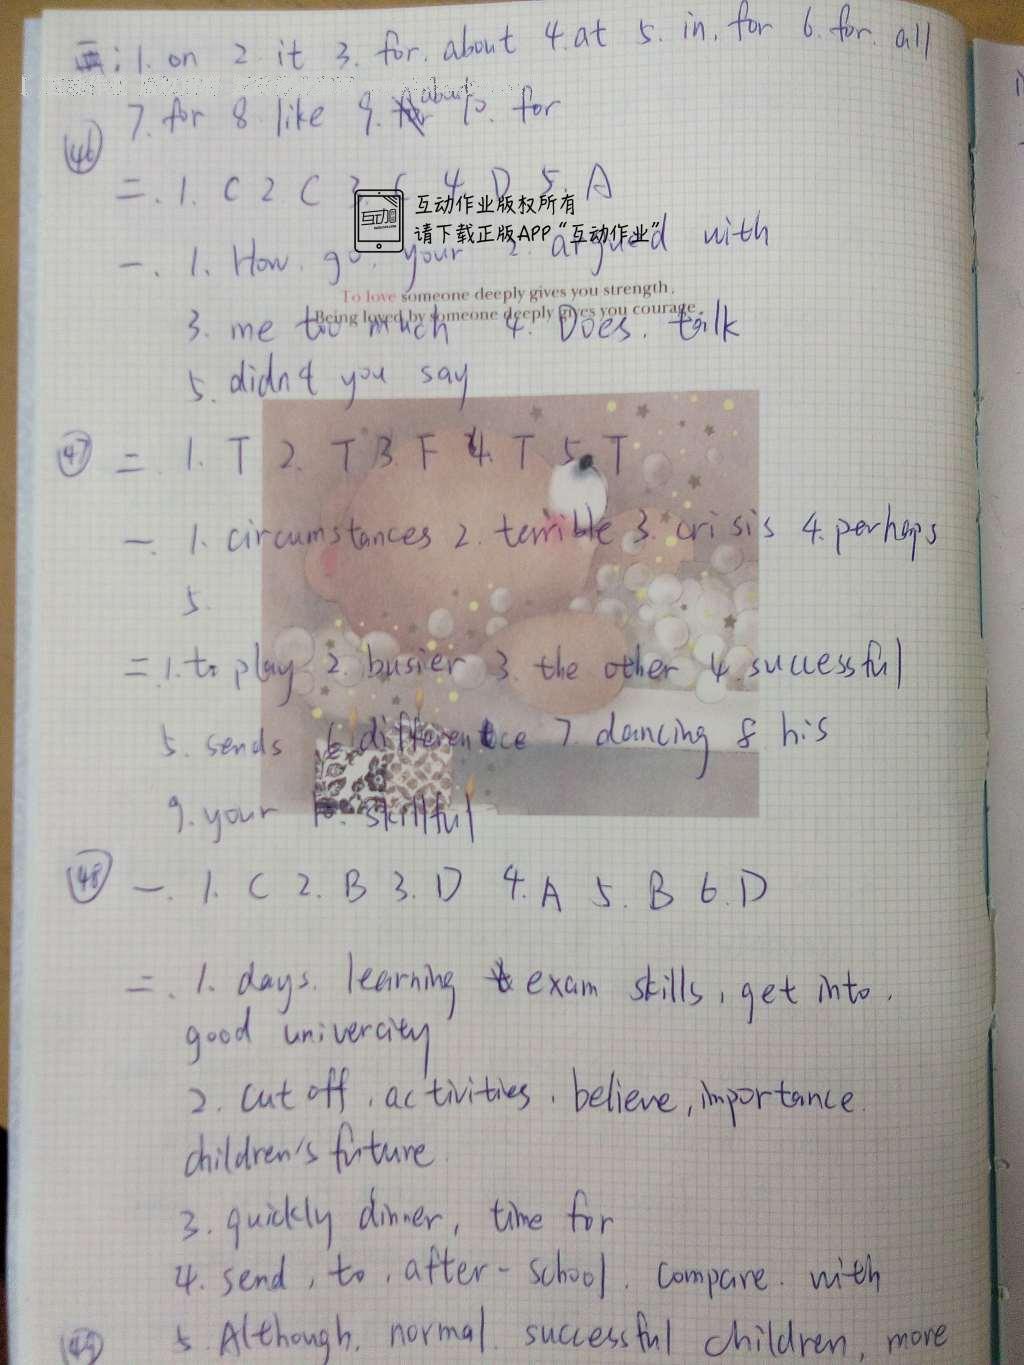 四:1. on 2. it 3. for. about 4. at 5. in. for 6. for. all
7. for 8 like 9. about 10. for
46
二. 1. C 2 C 3. C 4. D 5. A
互动作业版权所有
互动
请下载正版APP“互动作业”
一. 1. How. go. your 2. argued with
To love someone deeply gives you strength,
Being loved by someone deeply gives you courage.
3. me too much 4. Does. talk
5. didn't you say
47 二 1. T 2. T 3. F 4. T 5. T
一. 1. circumstances 2. terrible 3. crisis 4. perhaps
5.
二. 1. to play 2. busier 3. the other 4. successful
5. sends 6. difference 7. dancing 8 his
9. your 10. skillful
48 一. 1. C 2. B 3. D 4. A 5. B 6. D
二. 1. days. learning exam skills, get into.
good univercity
2. cut off. activities. believe, importance.
children's future.
3. quickly dinner, time for
4. send, to, after-school. compare. with
49 5. Although. normal. successful children, more